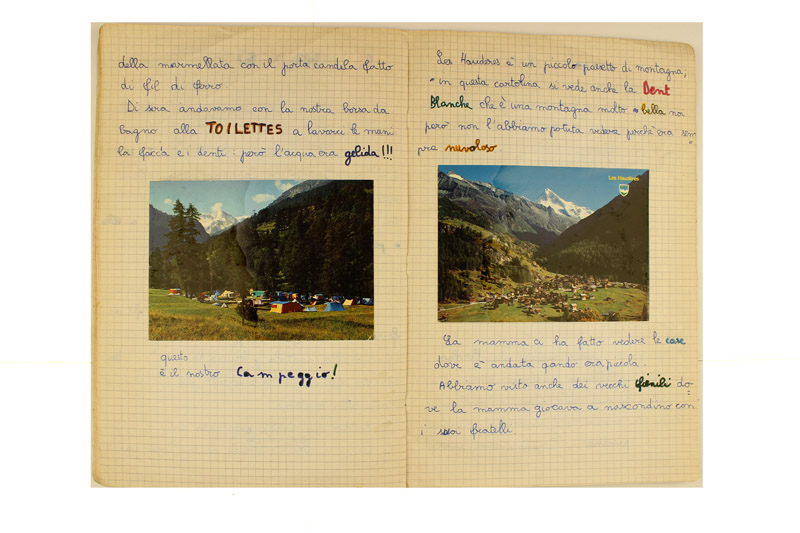 della marmellata con il porta candela fatto
di fil di ferro.
Di sera andavamo con la nostra borsa da
bagno alla TOILETTES a lavarci le mani
la faccia e i denti: però l'acqua era gelida!!!
questo
è il nostro Campeggio!
Les Haudères è un piccolo paesetto di montagna;
in questa cartolina si vede anche la Dent
Blanche che è una montagna molto bella noi
però non l'abbiamo potuta vedere perchè era sem=
pre nuvoloso.
Les Haudères
La mamma ci ha fatto vedere le case
dove è andata quando era piccola.
Abbiamo visto anche dei vecchi fienili do=
ve la mamma giocava a nascondino con
i suoi fratelli